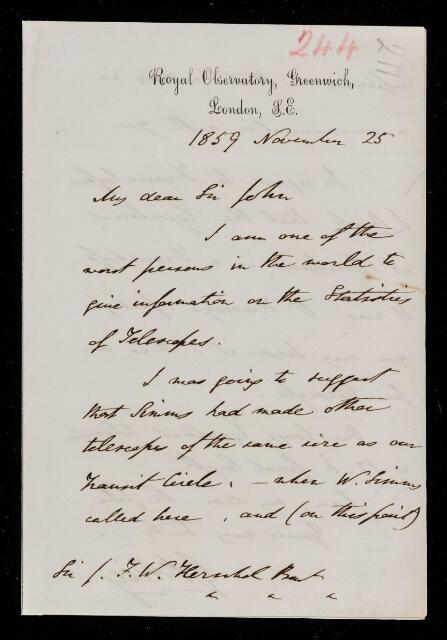 244
Royal Observatory, Greenwich,
London, S.E.
1859 November 25
My dear Sir John
I am one of the
worst persons in the world to
give information on the Statistics
of Telescopes.
I was going to suggest
that Simms had made other
telescopes of the same size as our
Transit Circle, — when W. Simms
called here, and (on this point)
Sir J. F. W. Herschel Bart